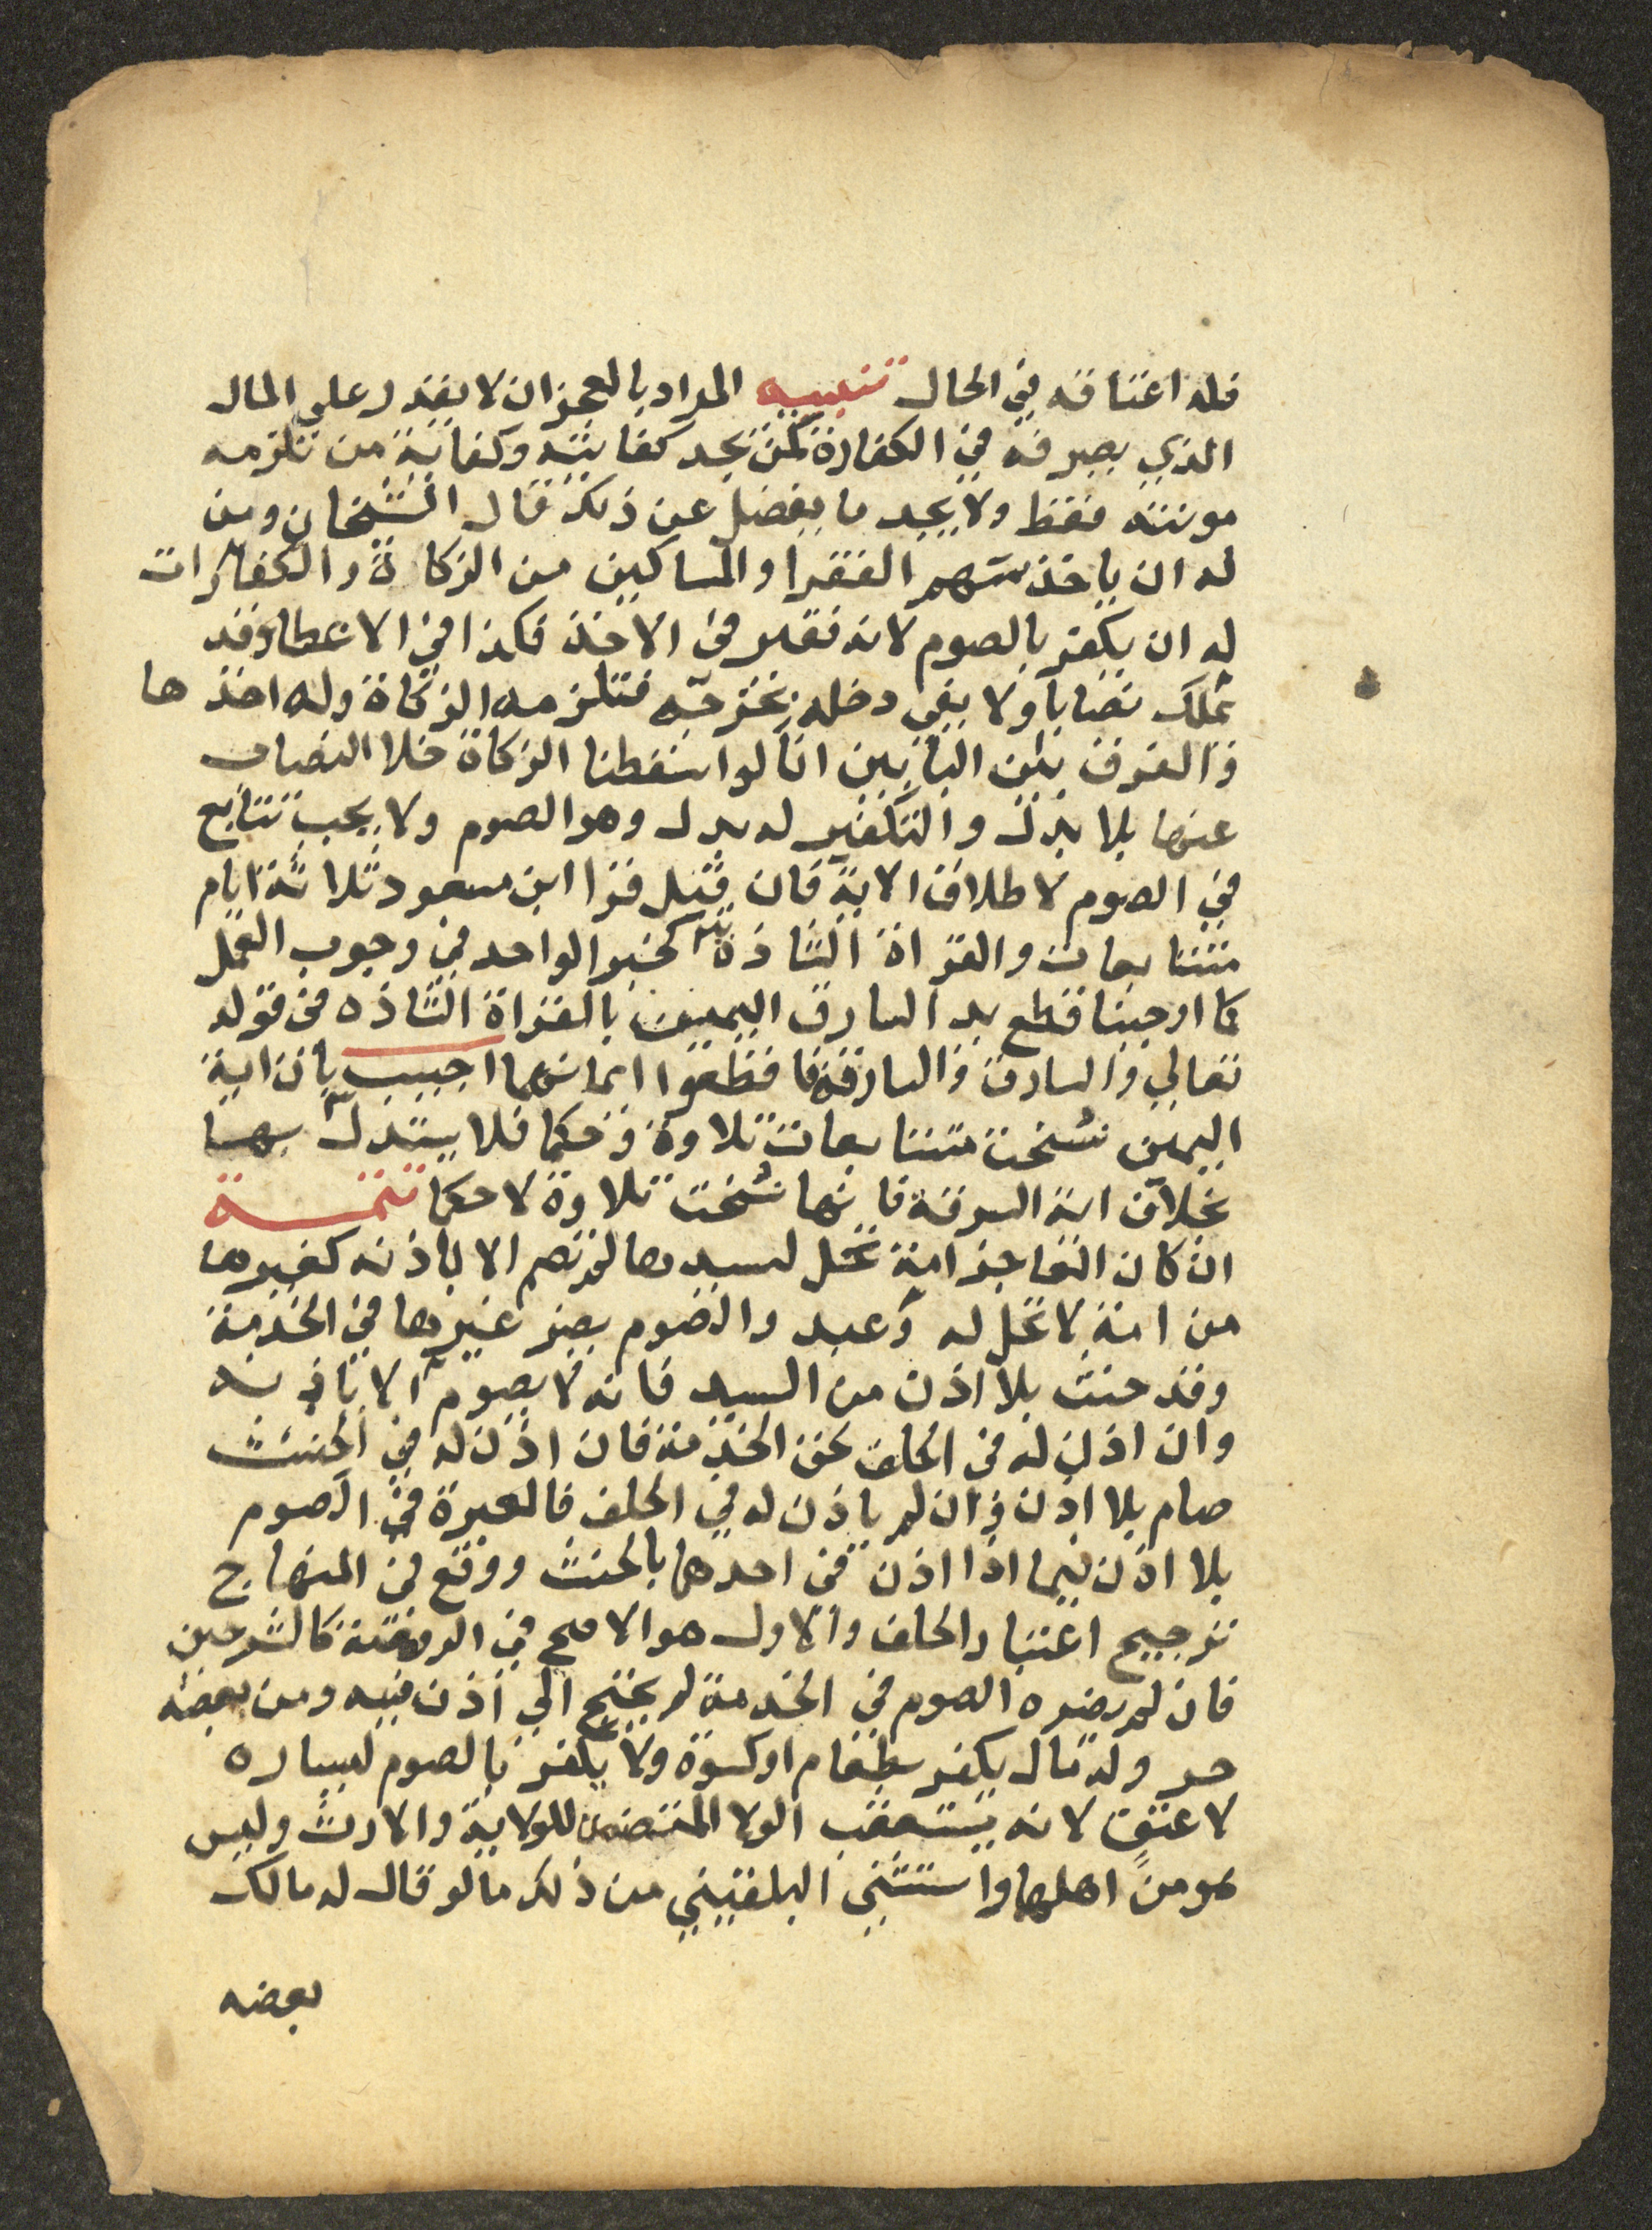 فله اعتاقه في الحال تنبيه المراد بالعجز ان لا يقدر على المال
الذي يصرفه في الكفارة كمن يجد كفايته وكفاية من تلزمه
مونته فقط ولا يجد ما يفضل عن ذلك قال الشيخان ومن
له ان ياخذ سهم الفقرا والمساكين من الزكاة والكفارات
له ان يكفر بالصوم لانه فقير في الاخذ فكذا في الاعطا وقد
يملك نصابا ولا يفي دخله بخرجه فتلزمه الزكاة وله اخذها
والفرق بين البابين انا لو اسقطنا الزكاة خلا النصاب
عنها بلا بدل والتكفير له بدل وهو الصوم ولا يجب تتابع
في الصوم لاطلاق الاية فان قيل قرا ابن مسعود ثلاثة ايام
متتابعات والقراة الشاذة كخبر الواحد في وجوب العمل
كما اوجبنا قطع يد السارق اليمين بالقراة الشاذه في قوله
تعالي والسارق والسارقة فاقطعوا ايمانهما اجيب بان اية
اليمين نسخت متتابعات تلاوة وحكما فلا يستدل بها
بخلاف اية السرقة فانها نسخت تلاوة لا حكما تتمة
ان كان العاجز امة تحل لسيدها لم تصم الا باذنه كغيرها
من امة لا تحل له وعبد والصوم يضر غيرها في الخدمة
وقد حنث بلا اذن من السيد فانه لا يصوم الا باذنه
وان اذن له في الحلف لحق الخدمة فان اذن له في الحنث
صام بلا اذن وان لم ياذن له في الحلف فالعبرة في الصوم
بلا اذن فيما اذا اذن في احدهما بالحنث ووقع في المنهاج
ترجيح اعتبار الحلف والاول هو الاصح في الروضة كالشرحين
فان لم يضره الصوم في الخدمة لم يحتج الي اذن فيه ومن بعضه
حر وله مال يكفر بطعام او كسوة ولا يكفر بالصوم ليساره
لا عتق لانه يستعقب الولا المتضمن للولاية والارث وليس
هو من اهلها واستثني البلقيني من ذلك ما لو قال له مالك
بعضه